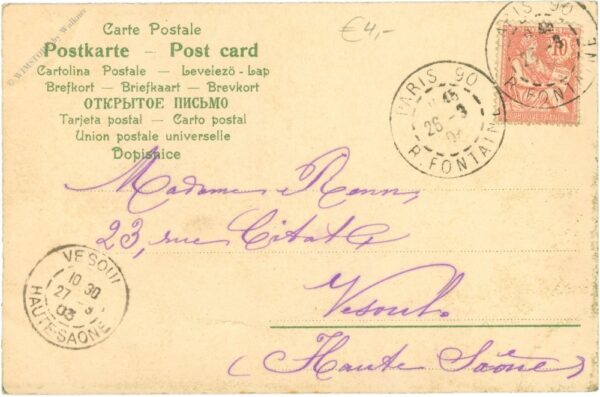 © WIMSTORY by Walkner
€ 4,-
Carte Postale
Postkarte – Post card
Cartolina Postale – Levelező-Lap
Brefkort – Briefkaart – Brevkort
ОТКРЫТОЕ ПИСЬМО
Tarjeta postal – Carto postal
Union postale universelle
Dopisnice
PARIS 90
R. FONTAINE
10
PARIS 90
26 - 3
R. FONTAINE
Madame Renn
23, rue
Vesoul
(Haute Saône)
VESOUL
10 30
27 - 3
03
HAUTE-SAONE